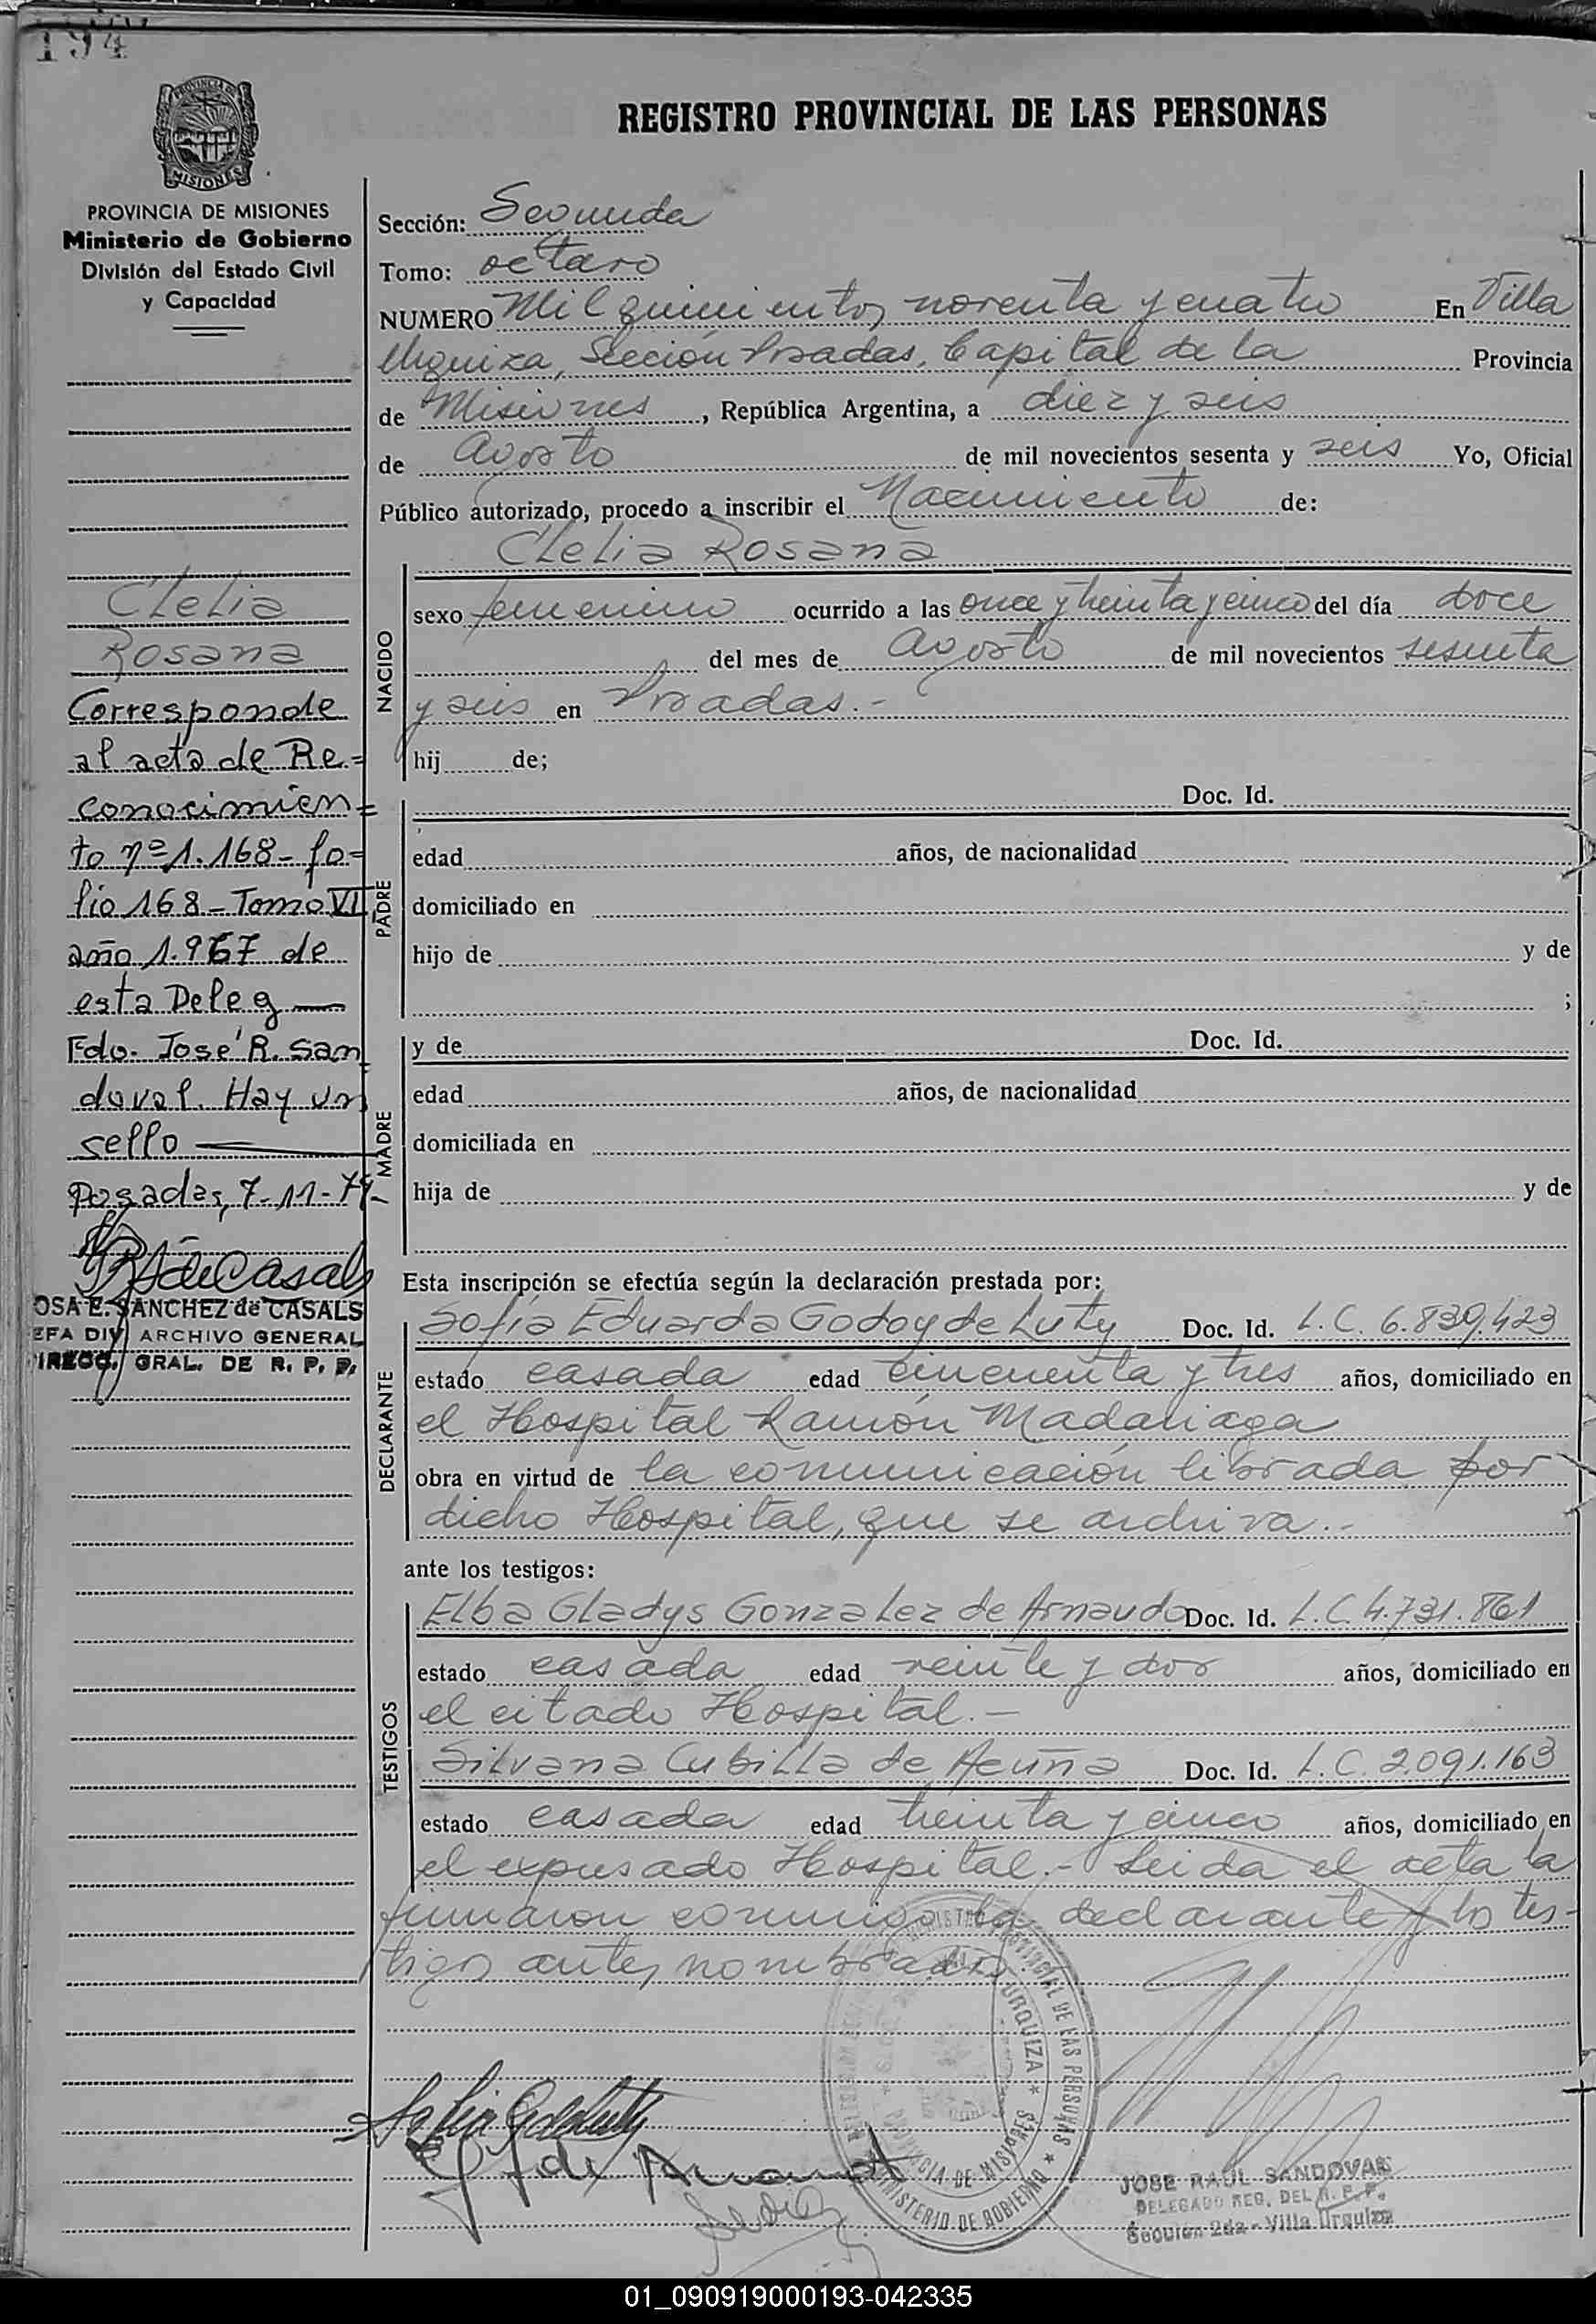 194
PROVINCIA DE MISIONES
MISIONES
PROVINCIA DE MISIONES
Ministerio de Gobierno
División del Estado Civil
y Capacidad
REGISTRO PROVINCIAL DE LAS PERSONAS
Sección: Segunda
Tomo: octavo
NUMERO Mil quinientos noventa y cuatro En Villa
Urquiza, Sección Posadas, Capital de la Provincia
de Misiones, República Argentina, a diez y seis
de Agosto de mil novecientos sesenta y seis Yo, Oficial
Público autorizado, procedo a inscribir el Nacimiento de:
Clelia Rosana
NACIDO
sexo femenino ocurrido a las once y treinta y cinco del día doce
del mes de Agosto de mil novecientos sesenta
y seis en Posadas.-
hij de;
PADRE
Doc. Id.
edad años, de nacionalidad
domiciliado en
hijo de y de
;
MADRE
y de Doc. Id.
edad años, de nacionalidad
domiciliada en
hija de y de
Esta inscripción se efectúa según la declaración prestada por:
DECLARANTE
Sofía Eduarda Godoy de Luty Doc. Id. L.C. 6.839.423
estado casada edad cincuenta y tres años, domiciliado en
el Hospital Ramón Madariaga
obra en virtud de la comunicación librada por
dicho Hospital, que se archiva.-
ante los testigos:
TESTIGOS
Elba Gladys Gonzalez de Arnaudo Doc. Id. L.C. 4.731.861
estado casada edad veinte y dos años, domiciliado en
el citado Hospital.-
Silvana Cubilla de Acuña Doc. Id. L.C. 2.091.163
estado casada edad treinta y cinco años, domiciliado en
el expresado Hospital.- Leida el acta la
firmaron conmigo la declarante y los tes-
tigos antes nombrados
Clelia
Rosana
Corresponde
al acta de Re=
conocimien=
to nº 1.168- fo=
lio 168- Tomo VI
año 1.967 de
esta Deleg
Fdo. José R. San
doval. Hay un
sello
Posadas, 7-11-79-
OSA E. SANCHEZ de CASALS
EFA DIV. ARCHIVO GENERAL
IRECC. GRAL. DE R. P. P.
REGISTRO PROVINCIAL DE LAS PERSONAS
URQUIZA
PROVINCIA DE MISIONES
MINISTERIO DE GOBIERNO
JOSE RAUL SANDOVAL
DELEGADO REG. DEL R. P. P.
Sección 2da - Villa Urquiza
01_090919000193-042335